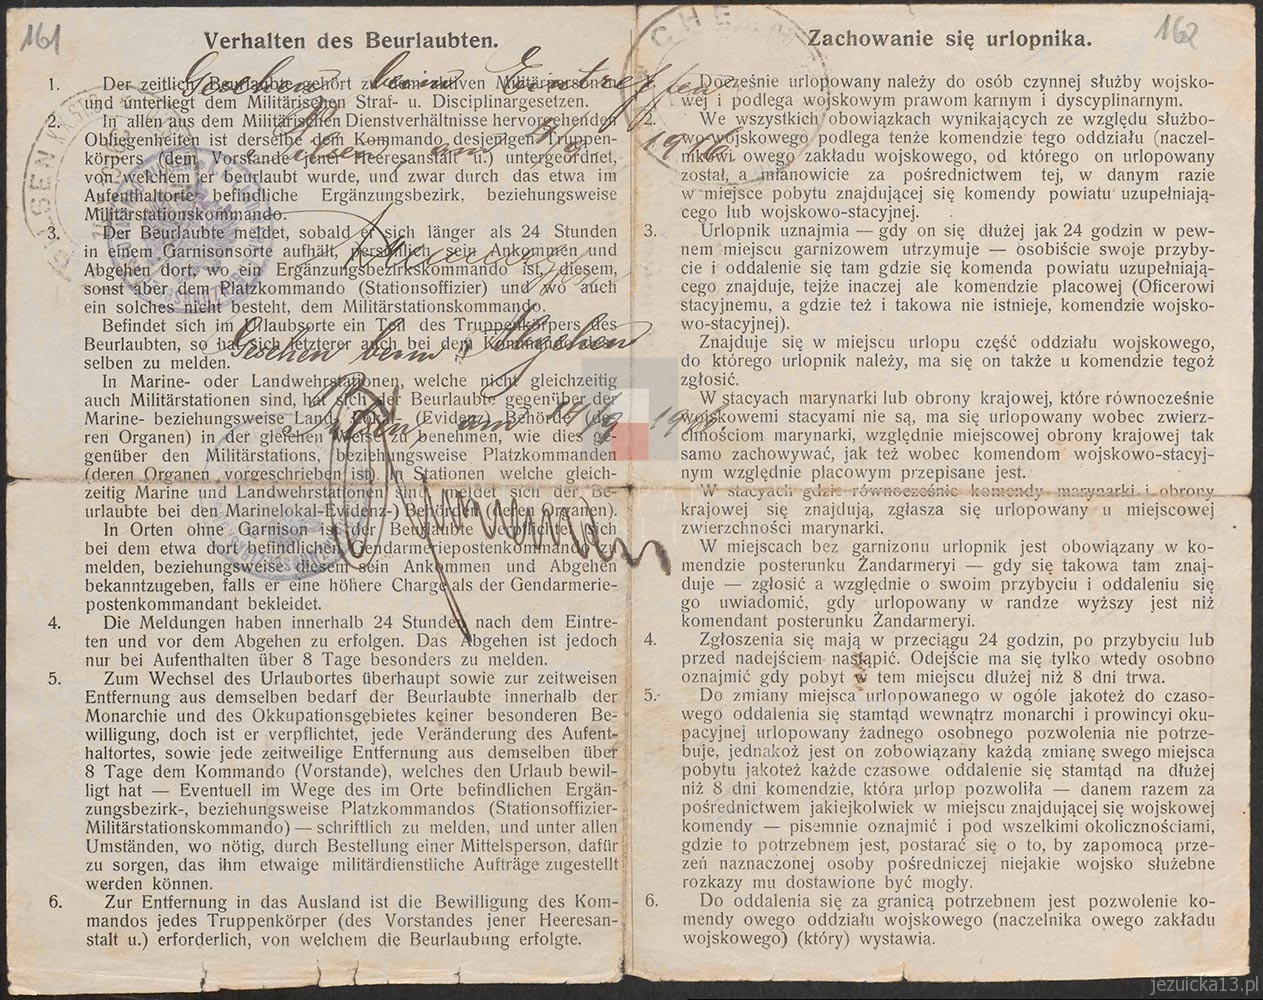 161
Verhalten des Beurlaubten.
1. Der zeitlich Beurlaubte gehört zu den aktiven Militärpersonen
und unterliegt dem Militärischen Straf- u. Disciplinargesetzen.
2. In allen aus dem Militärischen Dienstverhältnisse hervorgehenden
Obliegenheiten ist derselbe dem Kommando desjenigen Truppen-
körpers (dem Vorstande einer Heeresanstalt u.) untergeordnet,
von welchem er beurlaubt wurde, und zwar durch das etwa im
Aufenthaltorte befindliche Ergänzungsbezirk, beziehungsweise
Militärstationskommando.
3. Der Beurlaubte meldet, sobald er sich länger als 24 Stunden
in einem Garnisonsorte aufhält, persönlich sein Ankommen und
Abgehen dort, wo ein Ergänzungsbezirkskommando ist, diesem,
sonst aber dem Platzkommando (Stationsoffizier) und wo auch
ein solches nicht besteht, dem Militärstationskommando.
Befindet sich im Urlaubsorte ein Teil des Truppenkörpers des
Beurlaubten, so hat sich letzterer auch bei dem Kommando des-
selben zu melden.
In Marine- oder Landwehrstationen, welche nicht gleichzeitig
auch Militärstationen sind, hat sich der Beurlaubte gegenüber der
Marine- beziehungsweise Land. Lokal- (Evidenz) Behörde (de-
ren Organen) in der gleichen Weise zu benehmen, wie dies ge-
genüber den Militärstations, beziehungsweise Platzkommanden
(deren Organen vorgeschrieben ist). In Stationen welche gleich-
zeitig Marine und Landwehrstationen sind, meldet sich der Be-
urlaubte bei den Marinelokal-Evidenz-) Behörden (deren Organen).
In Orten ohne Garnison ist der Beurlaubte verpflichtet, sich
bei dem etwa dort befindlichen Gendarmeriepostenkommando zu
melden, beziehungsweise diesem sein Ankommen und Abgehen
bekanntzugeben, falls er eine höhere Charge als der Gendarmerie-
postenkommandant bekleidet.
4. Die Meldungen haben innerhalb 24 Stunden nach dem Eintre-
ten und vor dem Abgehen zu erfolgen. Das Abgehen ist jedoch
nur bei Aufenthalten über 8 Tage besonders zu melden.
5. Zum Wechsel des Urlaubortes überhaupt sowie zur zeitweisen
Entfernung aus demselben bedarf der Beurlaubte innerhalb der
Monarchie und des Okkupationsgebietes keiner besonderen Be-
willigung, doch ist er verpflichtet, jede Veränderung des Aufent-
haltortes, sowie jede zeitweilige Entfernung aus demselben über
8 Tage dem Kommando (Vorstande), welches den Urlaub bewil-
ligt hat — Eventuell im Wege des im Orte befindlichen Ergän-
zungsbezirk-, beziehungsweise Platzkommandos (Stationsoffizier-
Militärstationskommando) — schriftlich zu melden, und unter allen
Umständen, wo nötig, durch Bestellung einer Mittelsperson, dafür
zu sorgen, das ihm etwaige militärdienstliche Aufträge zugestellt
werden können.
6. Zur Entfernung in das Ausland ist die Bewilligung des Kom-
mandos jedes Truppenkörper (des Vorstandes jener Heeresan-
stalt u.) erforderlich, von welchem die Beurlaubung erfolgte.
Gesehen beim Eintreffen
1916
Gesehen beim Abgehen
am 1916
162
Zachowanie się urlopnika.
1. Docześnie urlopowany należy do osób czynnej służby wojsko-
wej i podlega wojskowym prawom karnym i dyscyplinarnym.
2. We wszystkich obowiązkach wynikających ze względu służbo-
wo-wojskowego podlega tenże komendzie tego oddziału (naczel-
nikowi owego zakładu wojskowego, od którego on urlopowany
został, a mianowicie za pośrednictwem tej, w danym razie
w miejsce pobytu znajdującej się komendy powiatu uzupełniają-
cego lub wojskowo-stacyjnej.
3. Urlopnik uznajmia — gdy on się dłużej jak 24 godzin w pew-
nem miejscu garnizowem utrzymuje — osobiście swoje przyby-
cie i oddalenie się tam gdzie się komenda powiatu uzupełniają-
cego znajduje, tejże inaczej ale komendzie placowej (Oficerowi
stacyjnemu, a gdzie też i takowa nie istnieje, komendzie wojsko-
wo-stacyjnej).
Znajduje się w miejscu urlopu część oddziału wojskowego,
do którego urlopnik należy, ma się on także u komendzie tegoż
zgłosić.
W stacyach marynarki lub obrony krajowej, które równocześnie
wojskowemi stacyami nie są, ma się urlopowany wobec zwierz-
chniościom marynarki, względnie miejscowej obrony krajowej tak
samo zachowywać, jak też wobec komendom wojskowo-stacyj-
nym względnie placowym przepisane jest.
W stacyach gdzie równocześnie komendy marynarki i obrony
krajowej się znajdują, zgłasza się urlopowany u miejscowej
zwierzchności marynarki.
W miejscach bez garnizonu urlopnik jest obowiązany w ko-
mendzie posterunku Żandarmeryi — gdy się takowa tam znaj-
duje — zgłosić a względnie o swoim przybyciu i oddaleniu się
go uwiadomić, gdy urlopowany w randze wyższy jest niż
komendant posterunku Żandarmeryi.
4. Zgłoszenia się mają w przeciągu 24 godzin, po przybyciu lub
przed nadejściem nastąpić. Odejście ma się tylko wtedy osobno
oznajmić gdy pobyt w tem miejscu dłużej niż 8 dni trwa.
5. Do zmiany miejsca urlopowanego w ogóle jakoteż do czaso-
wego oddalenia się stamtąd wewnątrz monarchi i prowincyi oku-
pacyjnej urlopowany żadnego osobnego pozwolenia nie potrze-
buje, jednakoż jest on zobowiązany każdą zmianę swego miejsca
pobytu jakoteż każde czasowe oddalenie się stamtąd na dłużej
niż 8 dni komendzie, która urlop pozwoliła — danem razem za
pośrednictwem jakiejkolwiek w miejscu znajdującej się wojskowej
komendy — pisemnie oznajmić i pod wszelkimi okolicznościami,
gdzie to potrzebnem jest, postarać się o to, by zapomocą prze-
zeń naznaczonej osoby pośredniczej niejakie wojsko służebne
rozkazy mu dostawione być mogły.
6. Do oddalenia się za granicą potrzebnem jest pozwolenie ko-
mendy owego oddziału wojskowego (naczelnika owego zakładu
wojskowego) (który) wystawia.
jezuicka13.pl